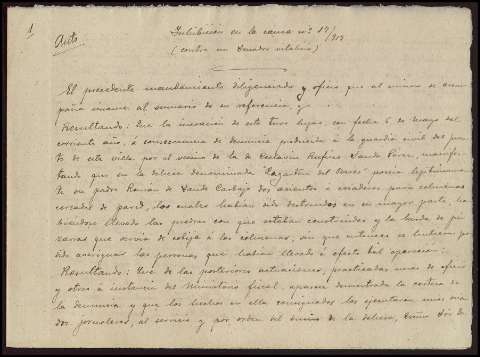 1
Auto.
Inhibición en la causa nº 17/913
(contra un Senador vitalicio)
El precedente mandamiento diligenciado y oficio que al mismo se acompaña únanse al sumario de su referencia; y
Resultando: Que la incoación de este tuvo lugar, con fecha 6 de Mayo del
corriente año, á consecuencia de denuncia producida á la guardia civil del puesto
de esta villa por el vecino de la de Rufino Sande Pérez, manifestando
que en la dehesa denominada "del poseía legítimamente
su padre Román de Sande Carbajo dos asientos ó criaderos para colmenas
cercados de pared, los cuales habían sido destruidos en su mayor parte, habiéndose
llevado las piedras con que estaban construidos y la banda de pizarras
que servía de cobija á las colmenas, sin que entonces se hubiera podido
averiguar las personas que habían llevado á efecto tal operación;
Resultando: Que de las posteriores actuaciones, practicadas unas de oficio
y otras á instancia del Ministerio fiscal, aparece demostrada la certeza de
la denuncia y que los hechos en ella consignados los ejecutaron unos criados
jornaleros, al servicio y por orden del dueño de la dehesa,